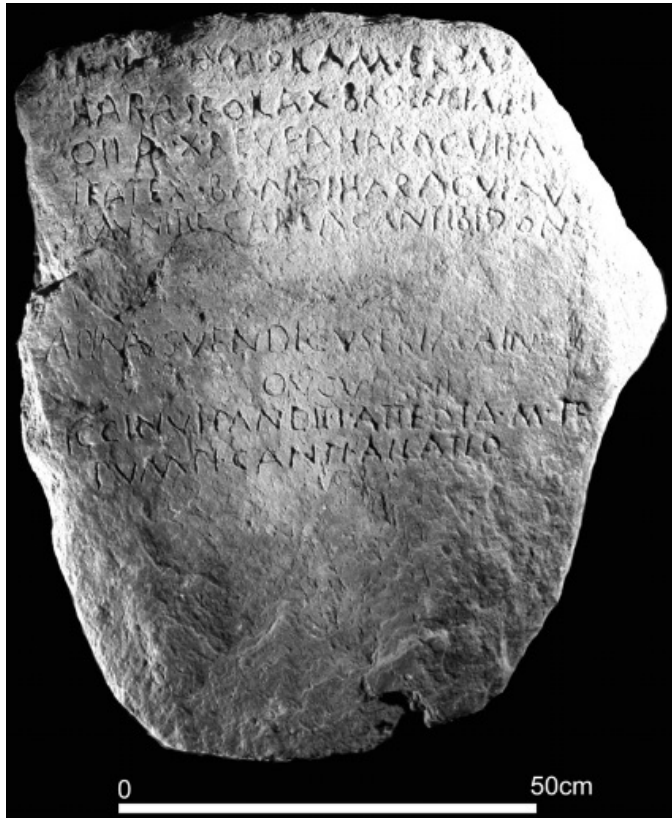 OILAM·ERBAM
HARASE OILA X·BROENEIAE H
OILA·X·REVE AHARACVI T A
IEATE X·BANDI HARAGVI AV
MVNITIE CARIA CANTIBIDONE
APINVS VENDICVS ERIACAIN
OVOVIANI
ICCINVI PANDITI ATTEDIA·M·TR
PVMPI·CANTI AILATIO
0 50cm